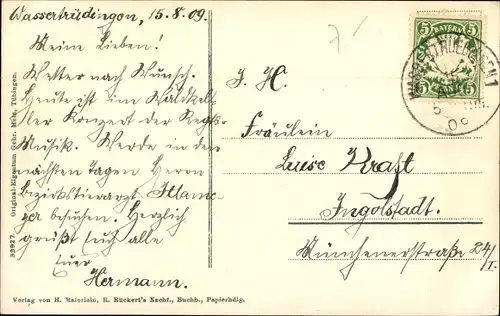 Wassertrüdingen, 15.8.09.
Meine Lieben!
Wetter nach Wunsch.
Heute ist im
der Konzert der Regts
Musik. Werde in den
nächsten Tagen Herrn
Bezirkstierarzt
besuchen. Herzlich
grüßt Euch alle
Euer
Hermann.
S. H.
Fräulein
Luise Kraft
Ingolstadt.
Münchenerstraße 24/I.
5 BAYERN 5
5 5
WASSERTRUEDINGEN 1
39927. Original-Eigentum Gebr. Metz, Tübingen.
Verlag von H. R. Rückert's Nachf., Buchh., Papierhdlg.